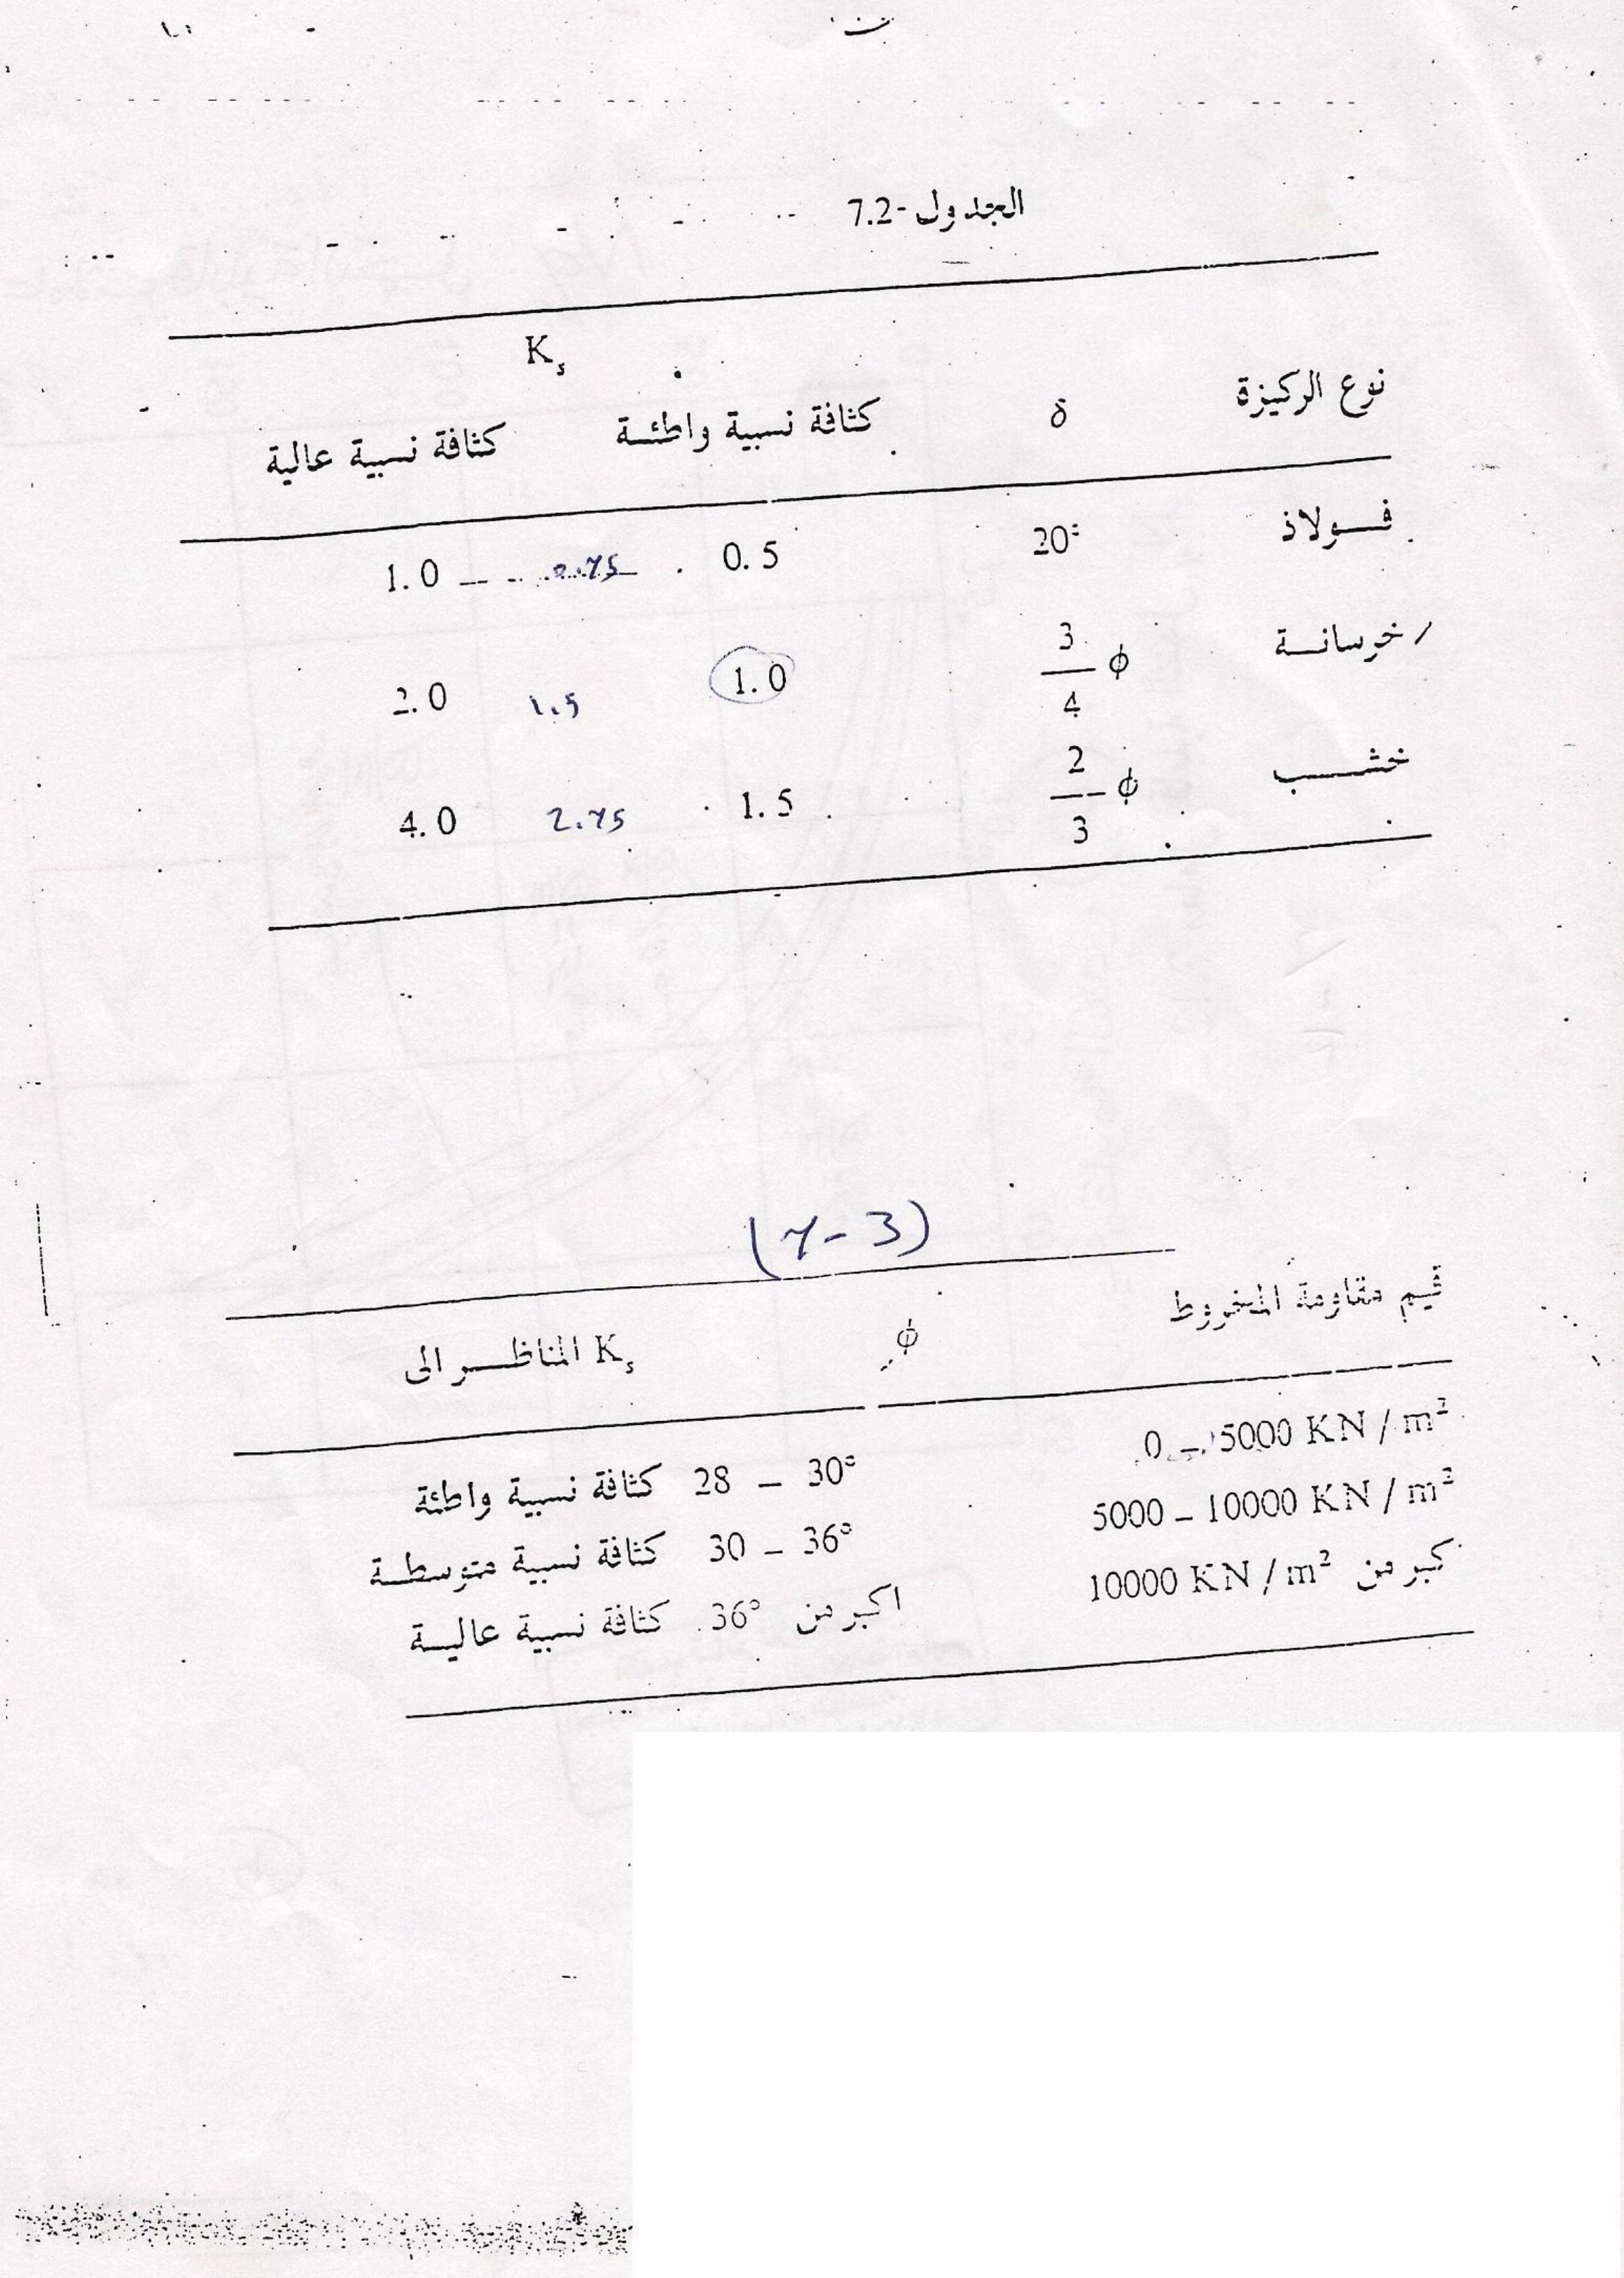 الجدول-7.2
K_s
نوع الركيزة δ كثافة نسبية واطئة كثافة نسبية عالية
فولاذ 20° 0.5 0.75 1.0
خرسانة 3/4 ϕ 1.0 1.5 2.0
خشب 2/3 ϕ 1.5 2.75 4.0
(7-3)
قيم مقاومة المخروط ϕ K_s المناظر الى
0 – 5000 KN / m² 28 – 30° كثافة نسبية واطئة
5000 – 10000 KN / m² 30 – 36° كثافة نسبية متوسطة
كبر من 10000 KN / m² اكبر من 36° كثافة نسبية عالية